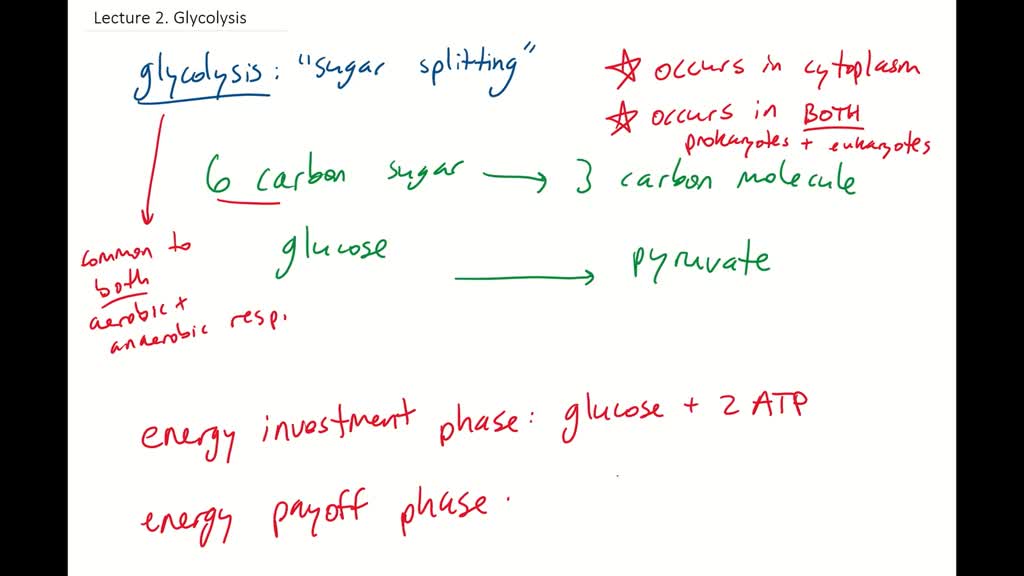 Lecture 2. Glycolysis
glycolysis: "sugar splitting"
☆ occurs in cytoplasm
☆ occurs in BOTH
prokaryotes + eukaryotes
6 carbon sugar → 3 carbon molecule
glucose → pyruvate
common to
both
aerobic +
anaerobic resp.
energy investment phase: glucose + 2 ATP
energy payoff phase: